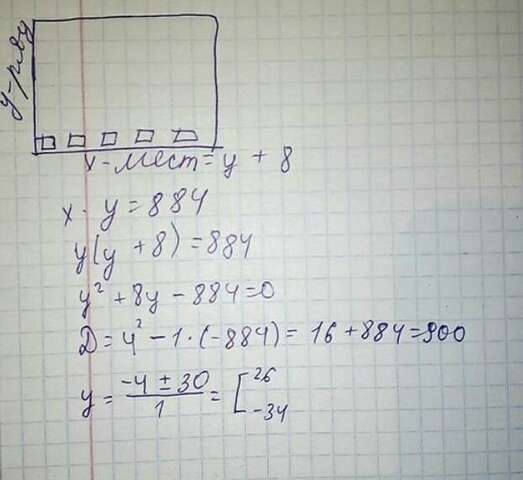 y-ряд
x-мест = y + 8
x · y = 884
y(y + 8) = 884
y² + 8y - 884 = 0
D = 4² - 1 · (-884) = 16 + 884 = 900
y = (-4 ± 30)/1 = [26
-34